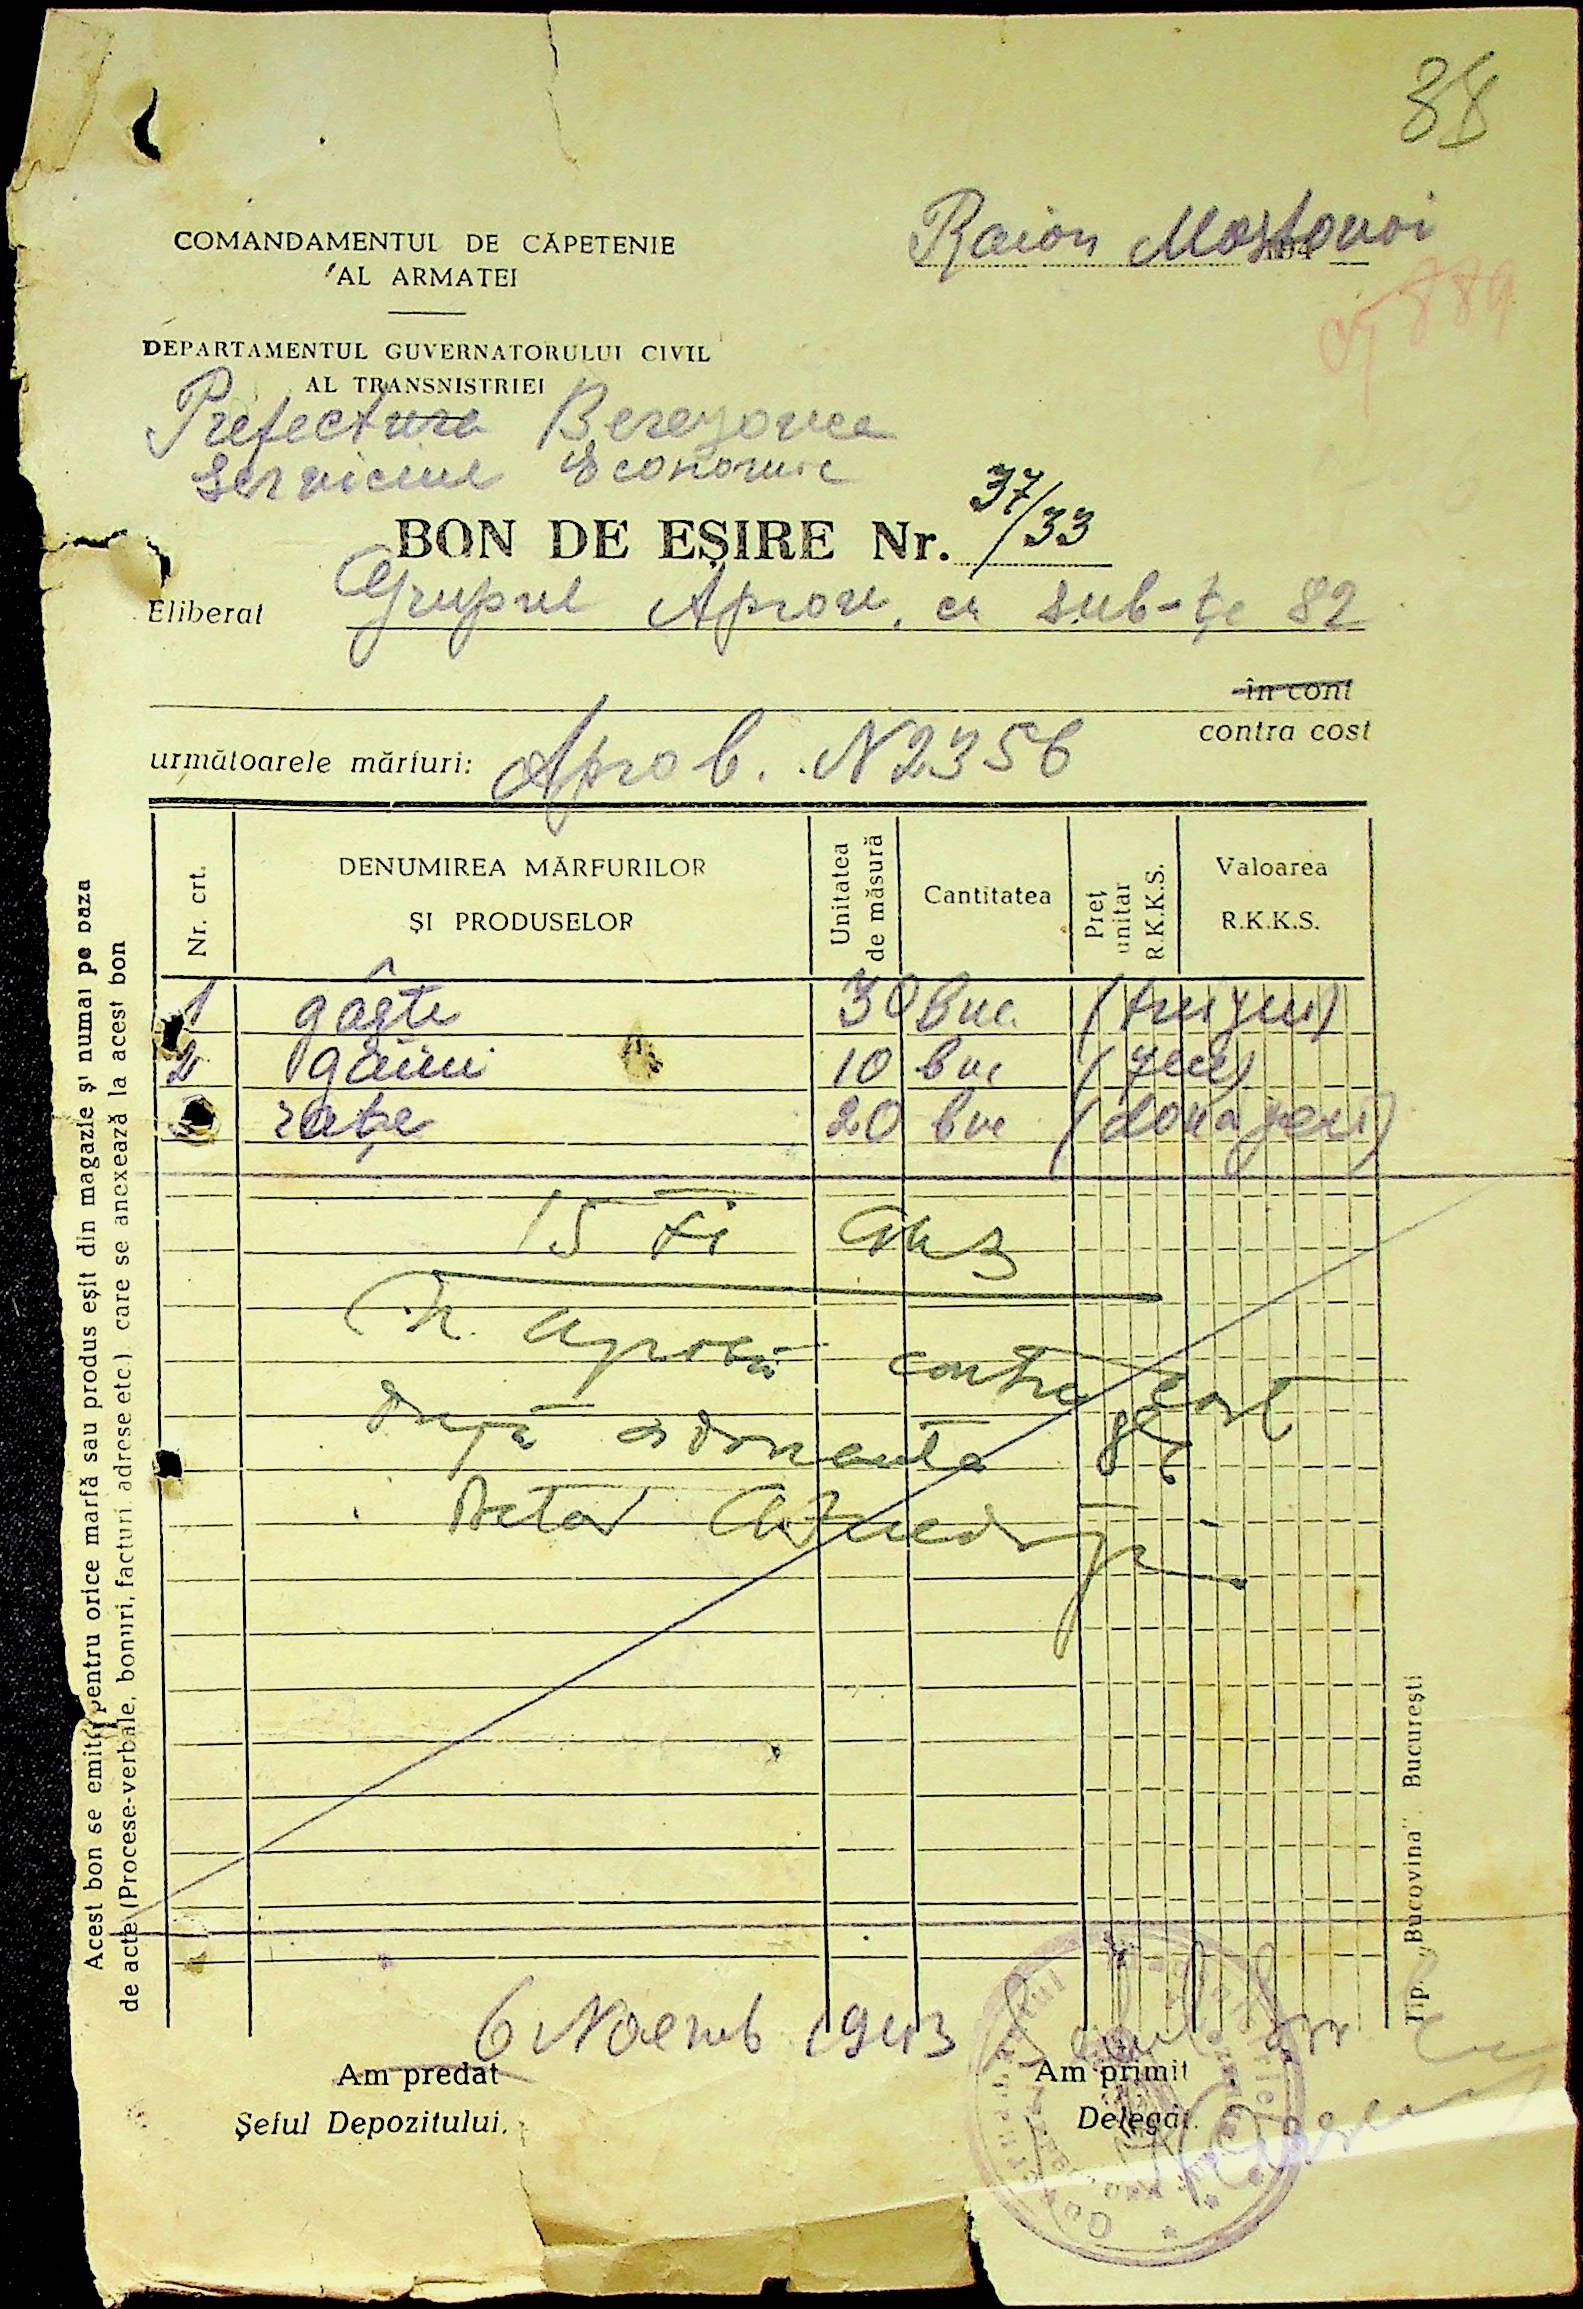 38
Raion Mostovoi
889
COMANDAMENTUL DE CĂPETENIE
AL ARMATEI
DEPARTAMENTUL GUVERNATORULUI CIVIL
AL TRANSNISTRIEI
Prefectura Berezovca
Serviciul Economic
BON DE EȘIRE Nr. 37/33
Eliberat Grupul Aprov. cu sub-țe 82
în cont
contra cost
următoarele mărfuri: Aprob. N 2356
Nr. crt.
DENUMIREA MĂRFURILOR
ȘI PRODUSELOR
Unitatea
de măsură
Cantitatea
Preț
unitar
R.K.K.S.
Valoarea
R.K.K.S.
1 gâște 30 buc. (treizeci)
2 găini 10 buc (zece)
rațe 20 buc (douăzeci)
15 XI
aprobă contra cost
după
6 Noemb 1943
Am predat
Șeful Depozitului.
Am primit
Delegat.
Acest bon se emite pentru orice marfă sau produs eșit din magazie și numai pe baza
de acte (Procese-verbale, bonuri, facturi adrese etc.) care se anexează la acest bon
Tip. „Bucovina". București